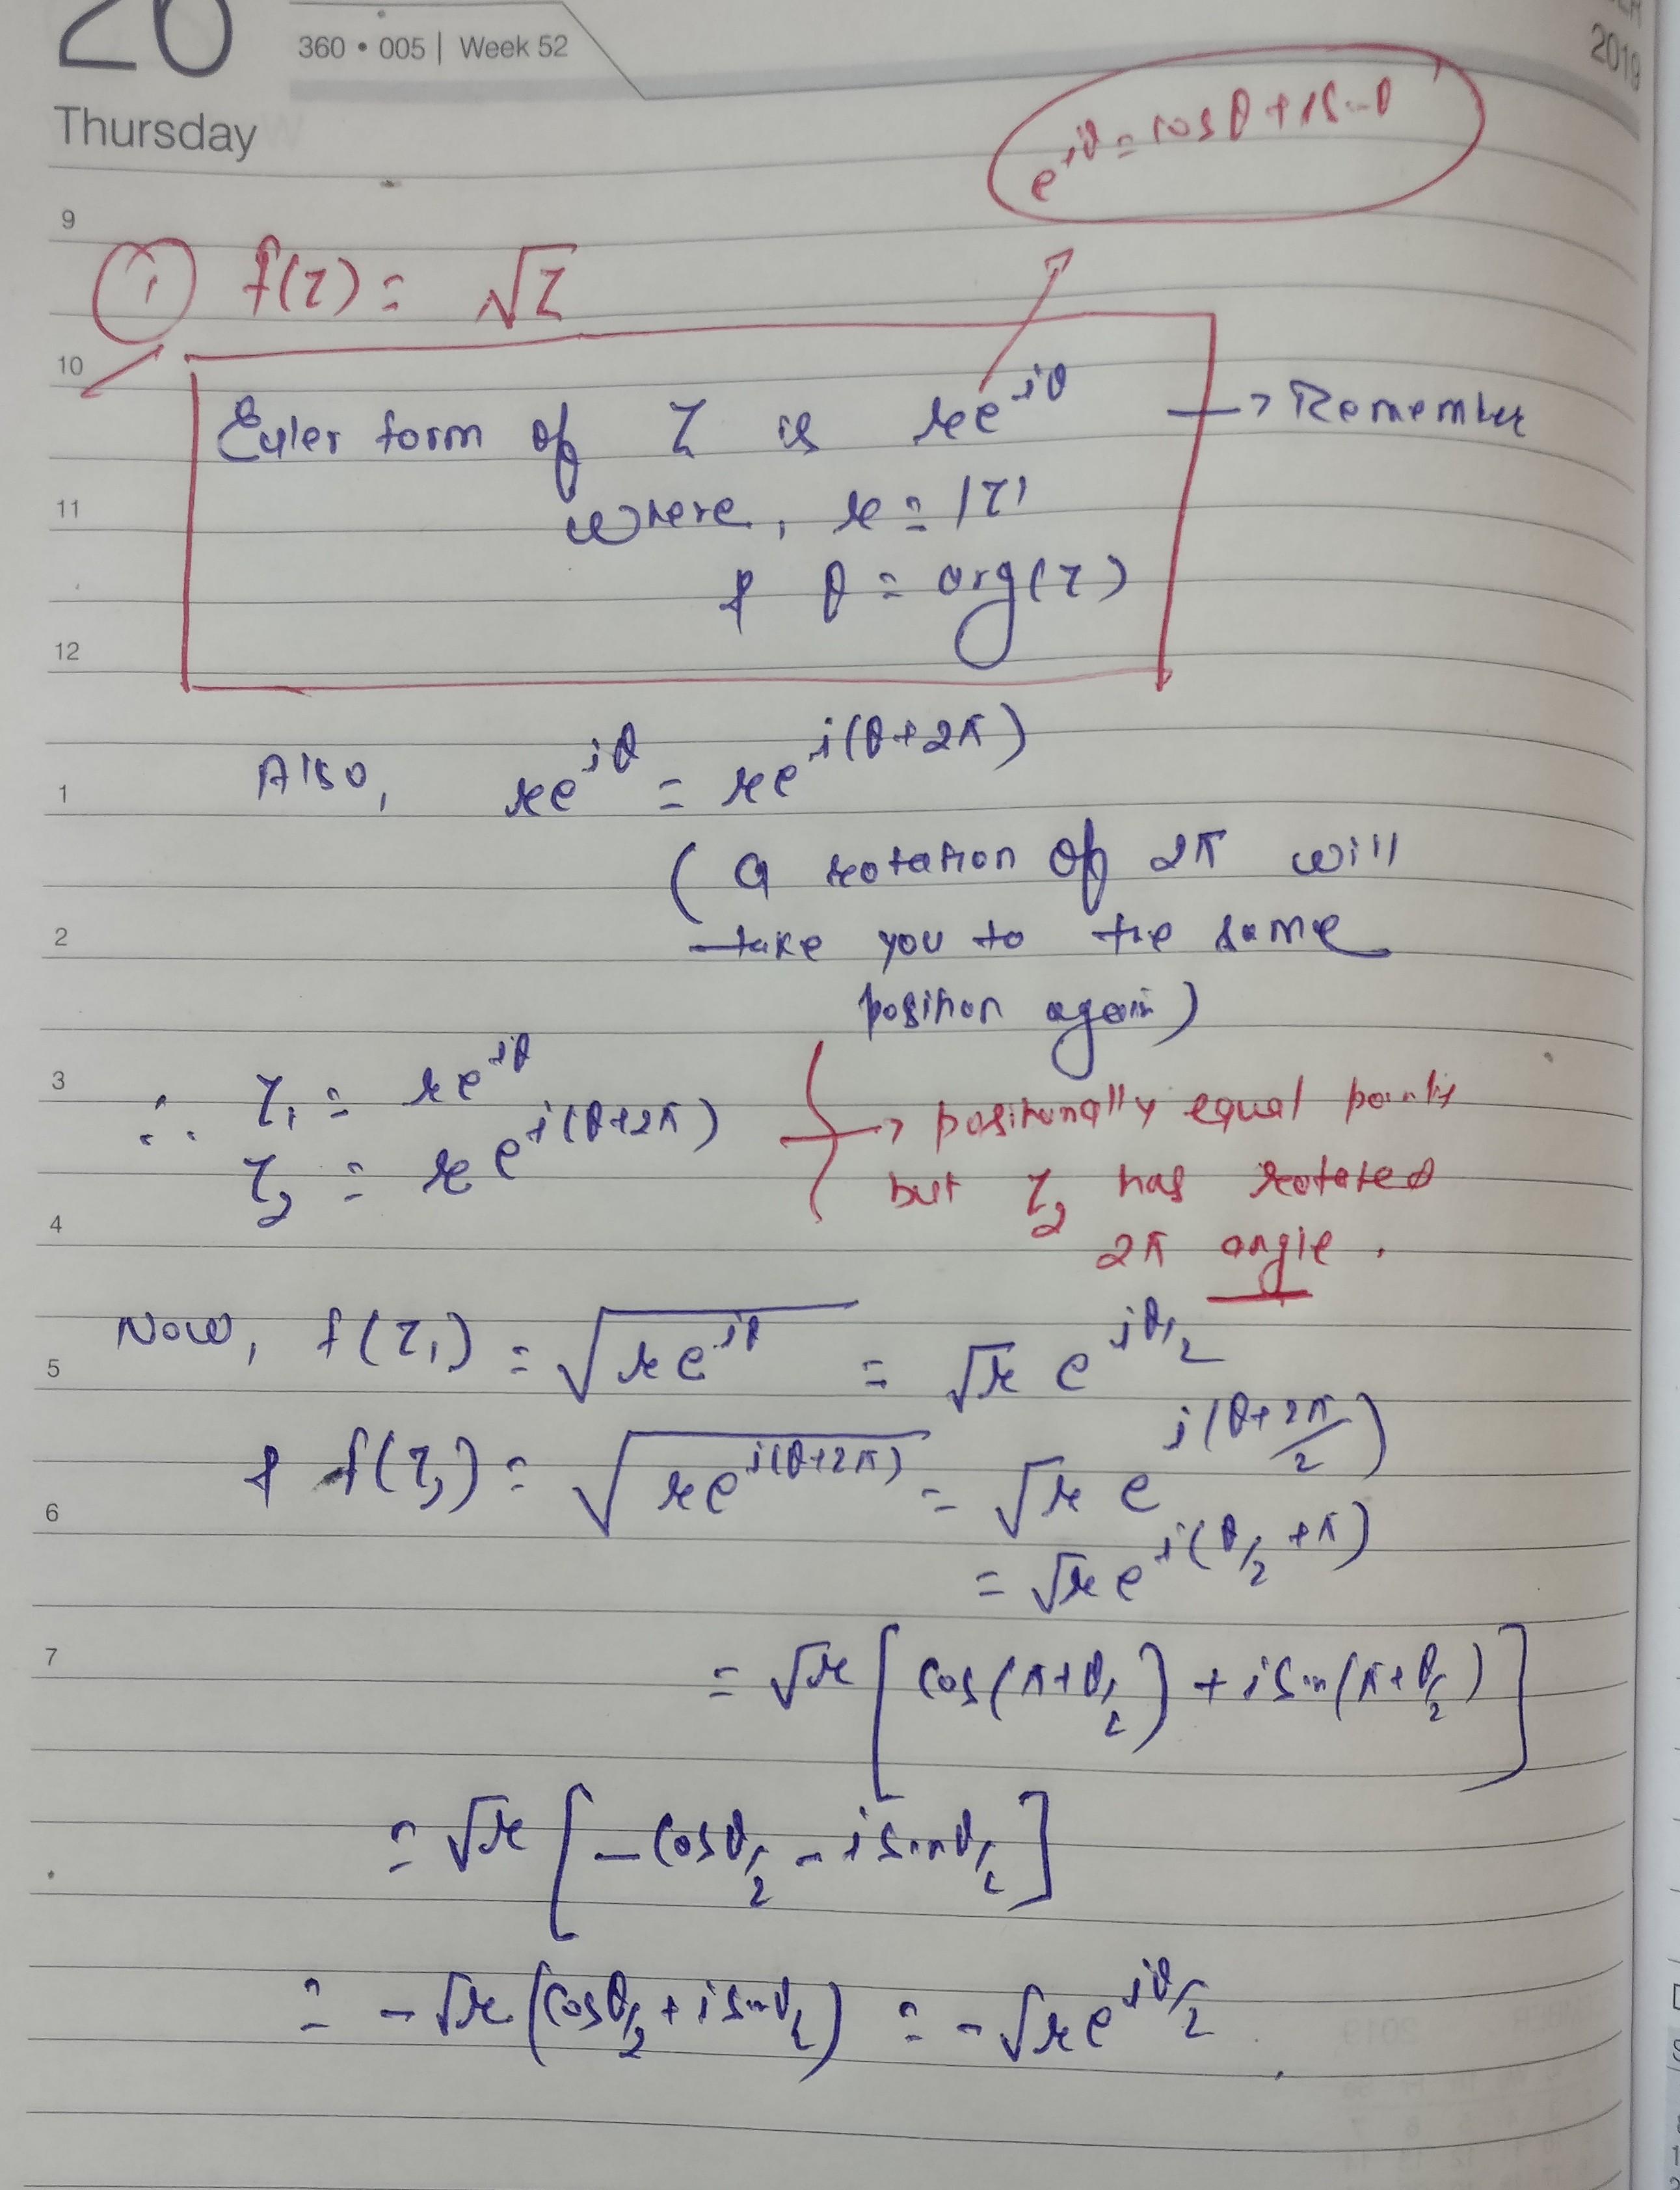 26
360 • 005 | Week 52
2019
Thursday
e^{iθ} = cos θ + i Sin θ
9
① f(z) = √z
10
Euler form of z is re^{iθ} → Remember
11
where, r = |z|
& θ = arg(z)
12
Also, re^{iθ} = re^{i(θ+2π)}
1
(a rotation of 2π will
2
take you to the same
position again)
3
∴ z₁ = re^{iθ}
z₂ = re^{i(θ+2π)}
→ positionally equal points
but z₂ has rotated
4
2π angle.
Now, f(z₁) = √(re^{iθ}) = √r e^{iθ/2}
5
& f(z₂) = √(re^{i(θ+2π)}) = √r e^{i(θ+2π/2)}
6
= √r e^{i(θ/2 + π)}
7
= √r [cos(π+θ/2) + i Sin(π+θ/2)]
= √r [-Cosθ/2 - i sinθ/2]
= -√r (cosθ/2 + i sinθ/2) = -√r e^{iθ/2}.